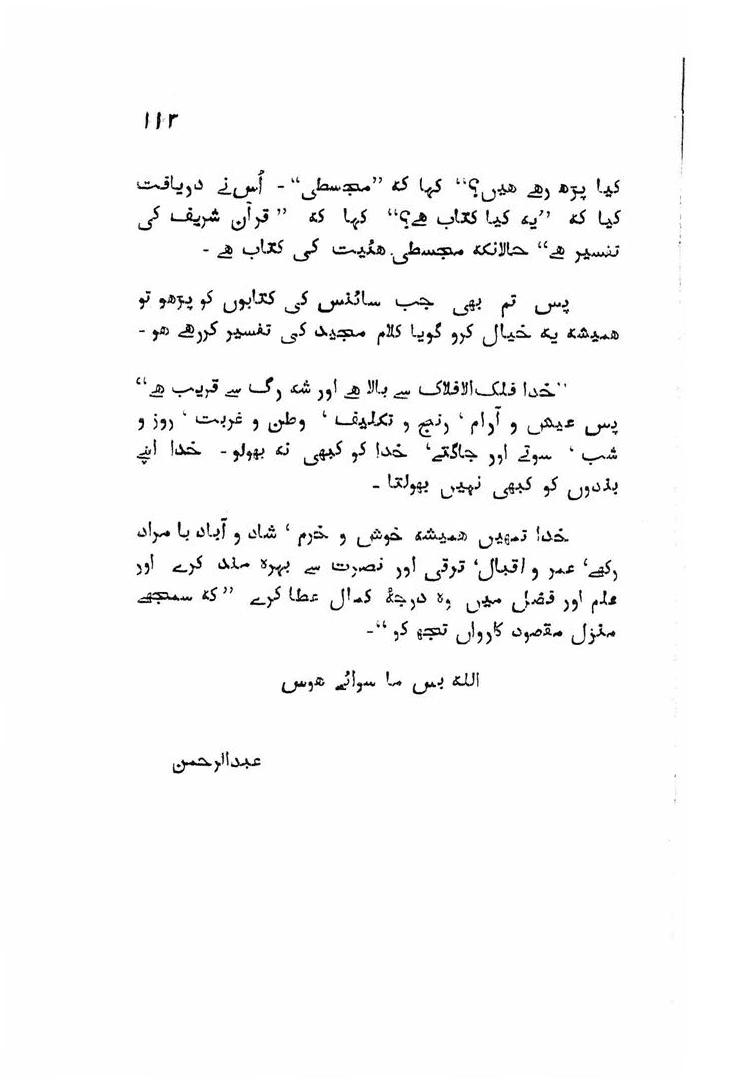 ۱۱۳
کیا پڑھ رہے ہیں؟“ کہا کہ ”مجسطی“ - اُس نے دریافت
کیا کہ ”یہ کیا کتاب ہے؟“ کہا کہ ”قرآن شریف کی
تفسیر ہے“ حالانکہ مجسطی ہئیت کی کتاب ہے -
پس تم بھی جب سائنس کی کتابوں کو پڑھو تو
ہمیشہ یہ خیال کرو گویا کلام مجید کی تفسیر کررہے ہو -
”خدا فلک الافلاک سے بالا ہے اور شہ رگ سے قریب ہے“
پس عیش و آرام ، رنج و تکلیف ، وطن و غربت ، روز و
شب ، سوتے اور جاگتے، خدا کو کبھی نہ بھولو - خدا اپنے
بندوں کو کبھی نہیں بھولتا -
خدا تمہیں ہمیشہ خوش و خرم ، شاد و آباد با مراد
رکھے، عمر و اقبال، ترقی اور نصرت سے بہرہ مند کرے اور
علم اور فضل میں وہ درجۂ کمال عطا کرے ”کہ سمجھے
منزل مقصود کارواں تجھ کو“-
اللہ بس ما سوائے ہوس
عبدالرحمن